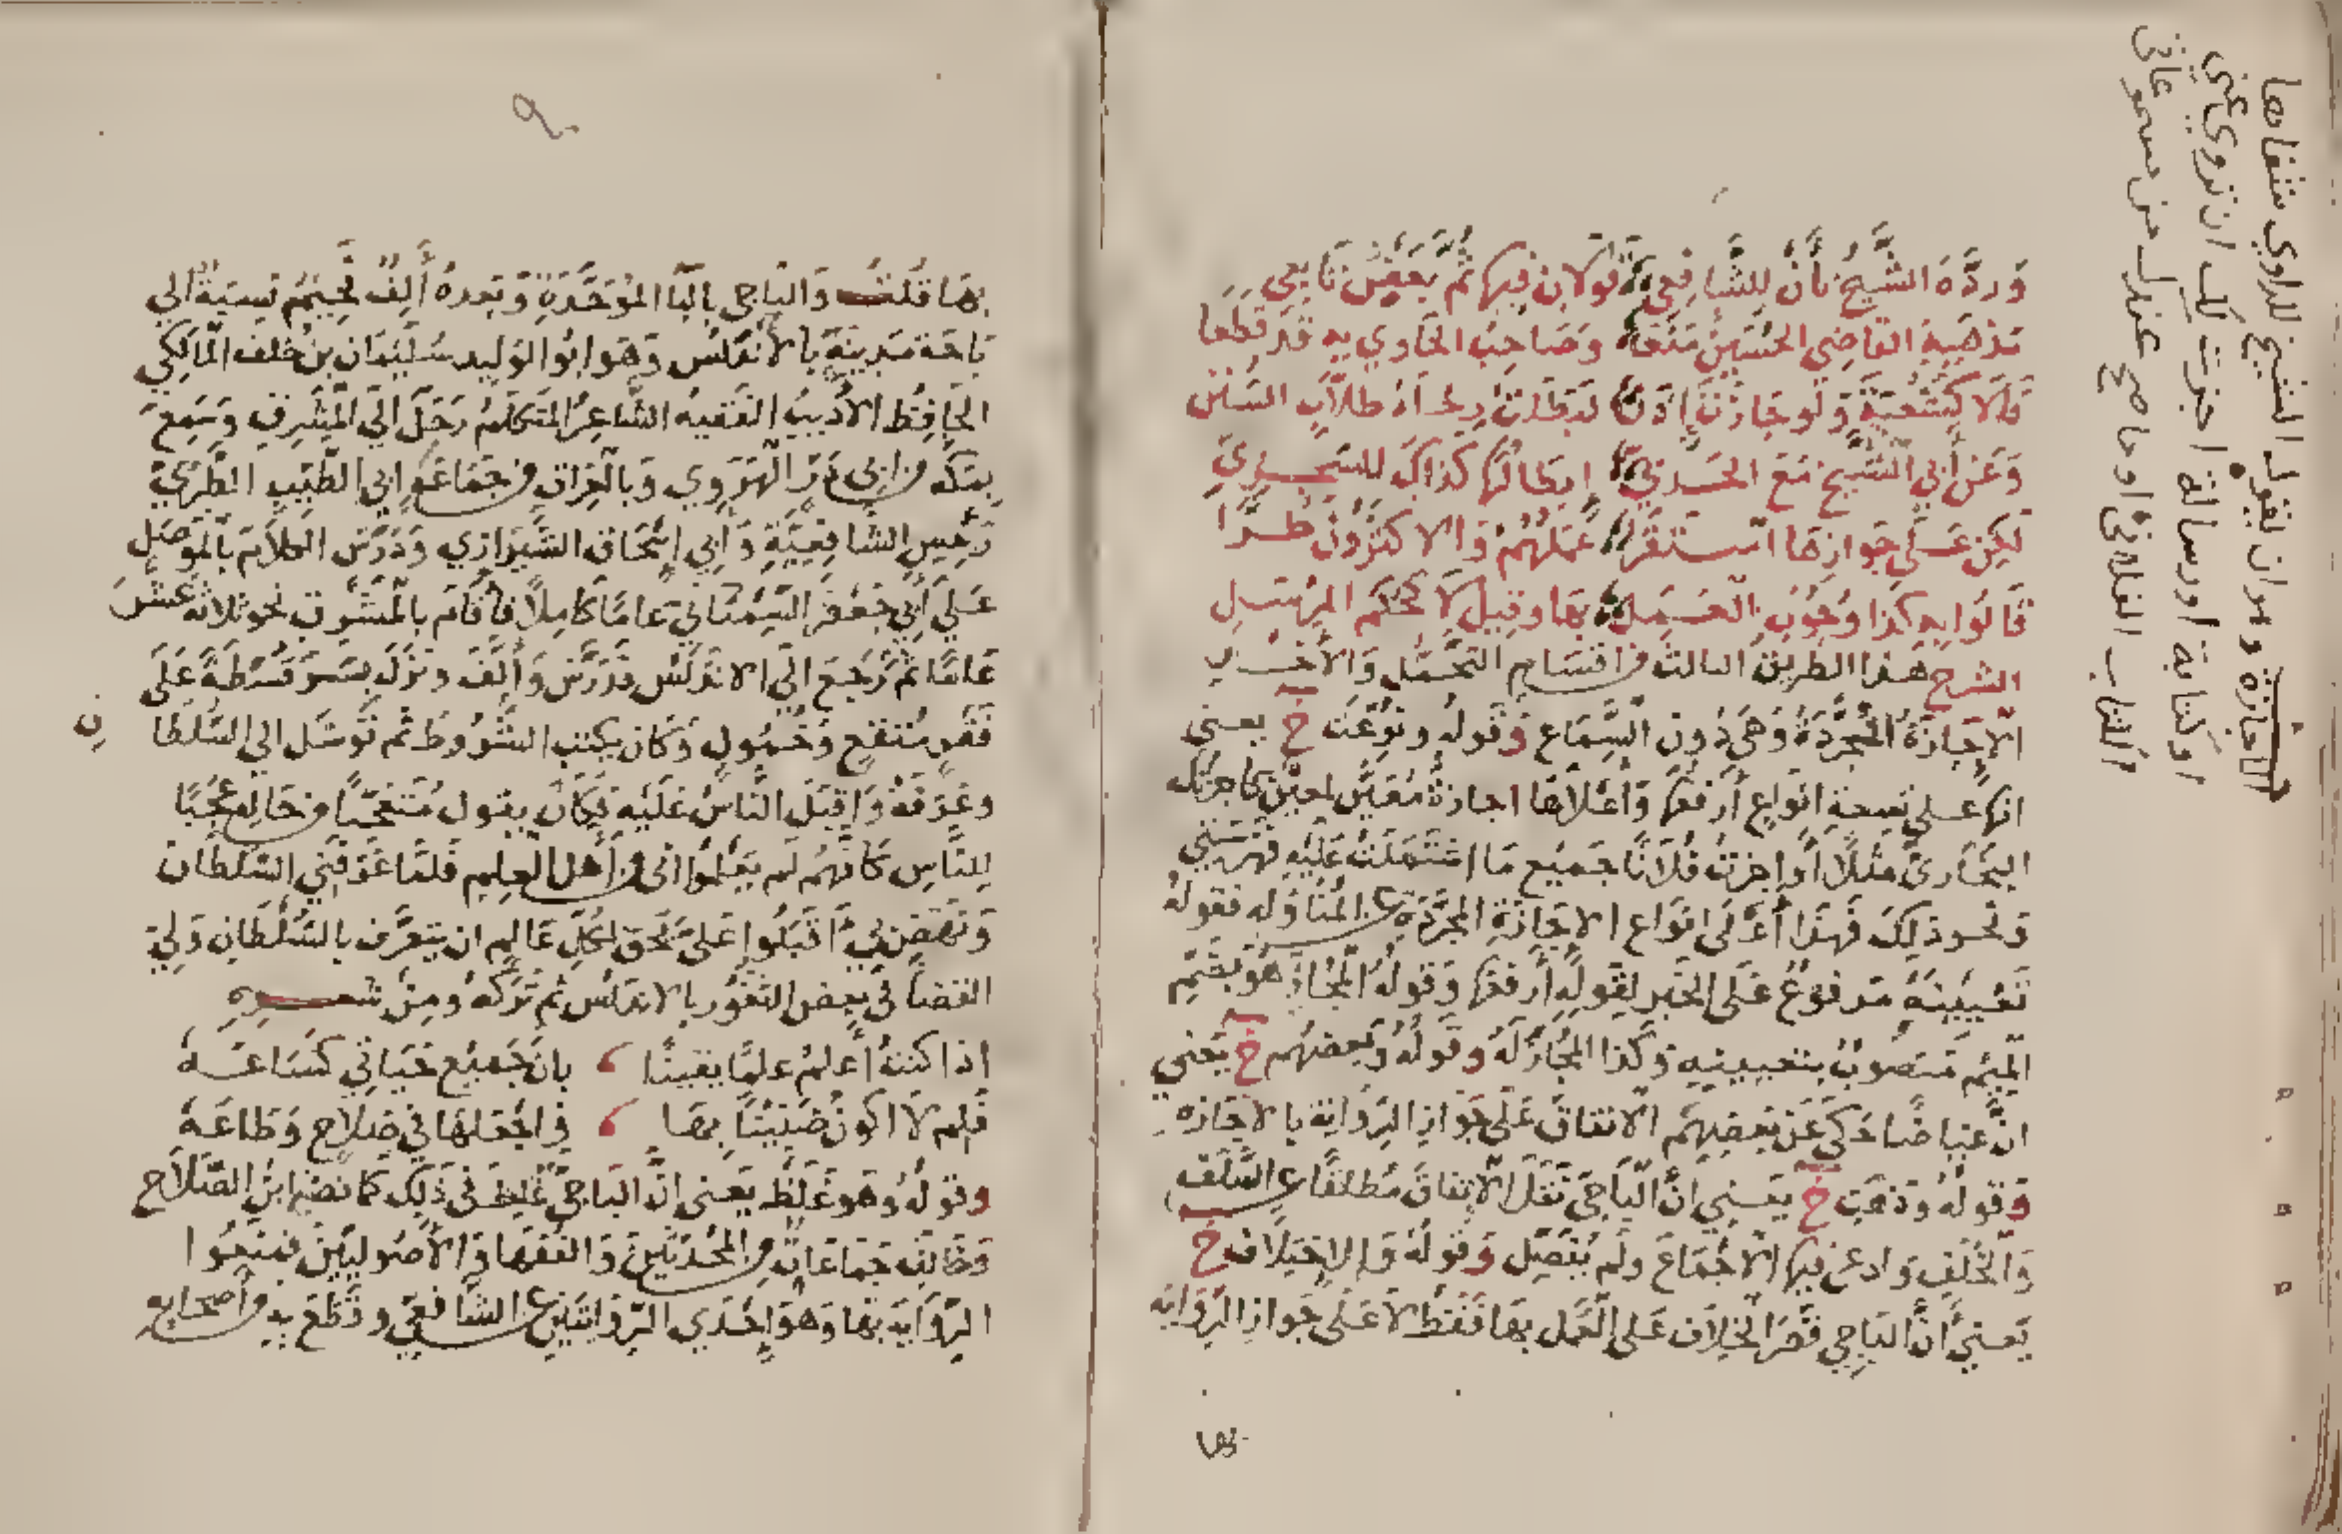 وَرَدَّهُ الشَّيْخُ بأنْ للِشَّافِعِي قَولان فيها ثُمَّ بَعْضُ تَابعِي
مَذْهَبِهِ القاضِي الحُسَينُ مَنَعَا وَصَاحِبُ الحَاوي بِهِ قَدْ قَطَعَا
قَالا كَشُعْبَةٍ وَلَو جَازَتْ إِذَنْ لَبَطَلتْ رِحْلَةُ طلاَّبِ السُّنَن
وَعَنْ أبي الشَّيخ مَعَ الحَرْبيِّ إبطَالُهَا كَذاكَ للسِّجْزِيِّ
لَكِنْ عَلَى جَوازِهَا اسْتَقَرَّا عَمَلُهُمْ وَالاكثَرُونَ طُرَّا
قَالُوا بِهِ كَذا وُجُوبُ العَمَلِ بها وقِيلَ لاَ كحُكم المُرْسَلِ
الشرح هَذا الطريق الثالث من اقسَام التحَمُّل وَالأخْذ
الإجَازَةُ المُجَرَّدَةُ وَهَى دُون السَّمَاع وَقَولُهُ ونُوِّعَتْ خ يعنى
انها عَلى تسعةِ انواع أرفعها وَأعْلاهَا اجازةُ مُعَيَّن لمعيَّن كاجزتك
البُخَارىَّ مثلاً أو اجزتُ فُلانًا جَميعَ مَا اشتَمَلَتْ عَلَيْهِ فَهْرَسَتي
وَنحو ذَلِكَ فَهَذَا أعْلَى انوَاع الاجَازَةِ المجَرَّدَةِ عن المنَاوَله فقولهُ
تَعْيِينَهُ مَرفوْعٌ عَلَى الخَبر لقَولِهِ أرفعُهَا وَقولُهُ المُجَازَ هُوَ بضَمِّ
المِيْم مَنصُوبٌ بتعيينِهِ وَكَذا المُجَازُ لَهُ وقَولُهُ وَبعضهُم خ يَعْنى
انَّ عيَاضًا حَكَى عَنْ بَعضِهِمُ الاتفاقَ عَلَى جَوَازِ الرِّوَايَة بالاجَازه
وَقَولُهُ وَذهَبَ خ يَعني انَّ البَاجيَّ نَقَلَ الاتفاقَ مُطلَقًا عن السَّلَف
وَالخَلَفِ وَادعى فيهَا الاجْمَاعَ وَلَم يُفَصِّل وَقَولُهُ وَالاخْتِلاف خ
يَعْنى أنَّ البَاجِي قَصَرَ الخِلافَ عَلَى العَمَل بهَا فَقَطْ لاَ عَلَى جَوازِ الرِّوَايَه
بهَا قُلتُ وَالبَاجي بالبَا المُوَحَّدَةِ وَبَعدهُ ألِفٌ فجِيمٌ نسبَةٌ الى
بَاجَة مَدينَةٍ بالأندَلُس وَهُوَ ابُو الوَليد سُلَيْمَان بن خلَف المَالكي
الحَافِظ الأدِيبُ الفَقيهُ الشَّاعِرُ المُتَكَلِّمُ رَحَلَ الَى المَشْرِقِ وَسَمِعَ
بمَكَّه من ابى ذَرّ الهَرَوِي وَبالعِرَاق من جَمَاعَةٍ ابي الطَّيِّبِ الطَّبَرىِّ
رَئيس الشَّافِعِيَّةِ وَأبِي إسْحَاقَ الشيرَازي وَدَرَسَ الكلاَمَ بالمَوصِل
عَلَى أبي جَعفَر السِّمنَانيّ عَامًا كامِلاً فأقَامَ بالمَشْرِق نحو ثلاثة عَشَرَ
عَامًا ثُمَّ رَجَعَ الَى الاندَلُس فدَرَّسَ وَألَّفَ ونَزَلَ بسَرَقُسْطَةَ عَلَى
فَقْرٍ مُتقَعٍ وَخُمُولٍ وَكَانَ يكتبُ الشُّرُوطَ ثم تَوَسَّلَ الى السُّلطَا
ن
وعَرَفَهُ وَاقبَلَ النَّاسُ عَلَيْهِ فَكَانَ يقول مُتَعَجِّبًا من حَالِهِ عَجَبًا
لِلنَّاسِ كَانَّهُمْ لَم يَعْلمُوا انى من أهْل العِلم فَلَمَّا عَرَفَنِي السُّلطَان
وَنَهَضَ بيْ أقبَلُوا عَلىَّ يحق لكُلِّ عَالم ان يتعرَّف بالسُّلْطَان وَلِي
القضَا في بعض الثغُور بالاندَلُس ثُمَّ تَرَكَهُ وَمِنْ شعره
اذا كنتُ أعلمُ علمًا يقينًا ، بانَّ جَميْعَ حَيَاتِي كَسَاعَهْ
فَلِم لاَ اكونُ ضَنِيْنًا بهَا ، وَاجْعَلهَا في صَلاح وَطَاعَهْ
وقولُهُ وَهوَ غَلَطْ يَعنى انَّ البَاجىَّ غَلِطَ في ذَلِكَ كمَا نصَّهُ ابنُ الصَّلاَح
وَخَالَفَ جَمَاعَاتٌ من المُحَدِّثِيْنَ وَالفُقهَا وَالأصُوليِّيْنَ فمَنعُوا
الرِّوَايَةَ بهَا وَهْوَ إحْدَى الرِّوَايَتَيْن عن الشَّافعيّ وقَطَعَ بهِ من أصْحَابِهِ
الاجازة وهو ان يقول الشيخ للراوي شفاها
او كتابة او رسالة اجزت لك ان تروي عني
الكتاب الفلاني او ما صح عندك من مسموعاتى